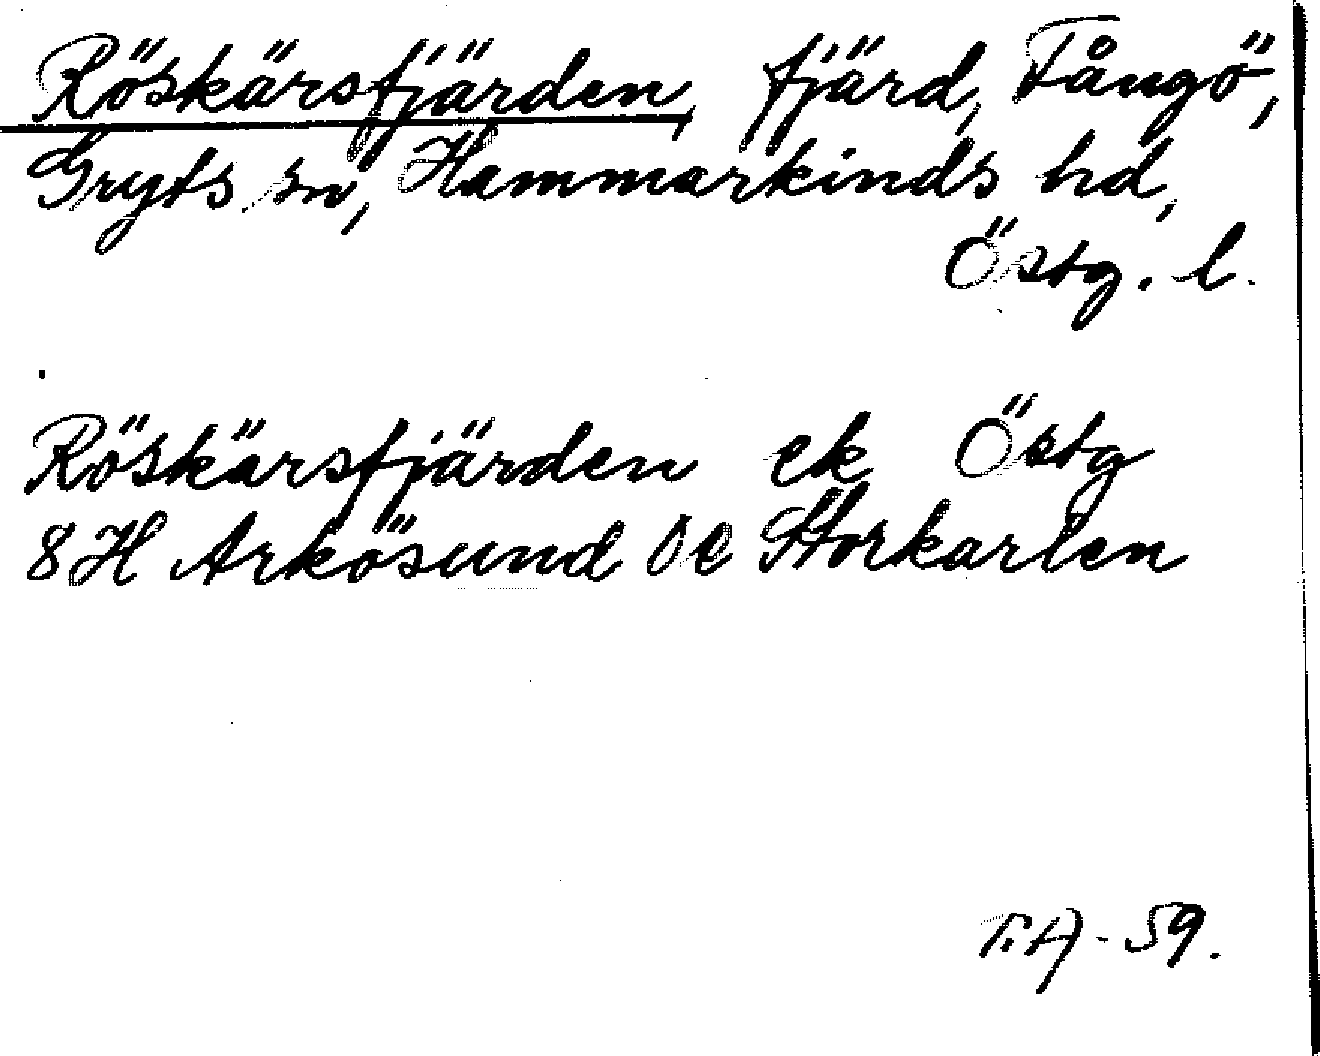 Röskärsfjärden, fjärd, Fångö,
Gryts sn, Hammarkinds hd,
Östg. l.
Röskärsfjärden ek Östg
8H Arkösund Öc Storkarten
T.A - 59.